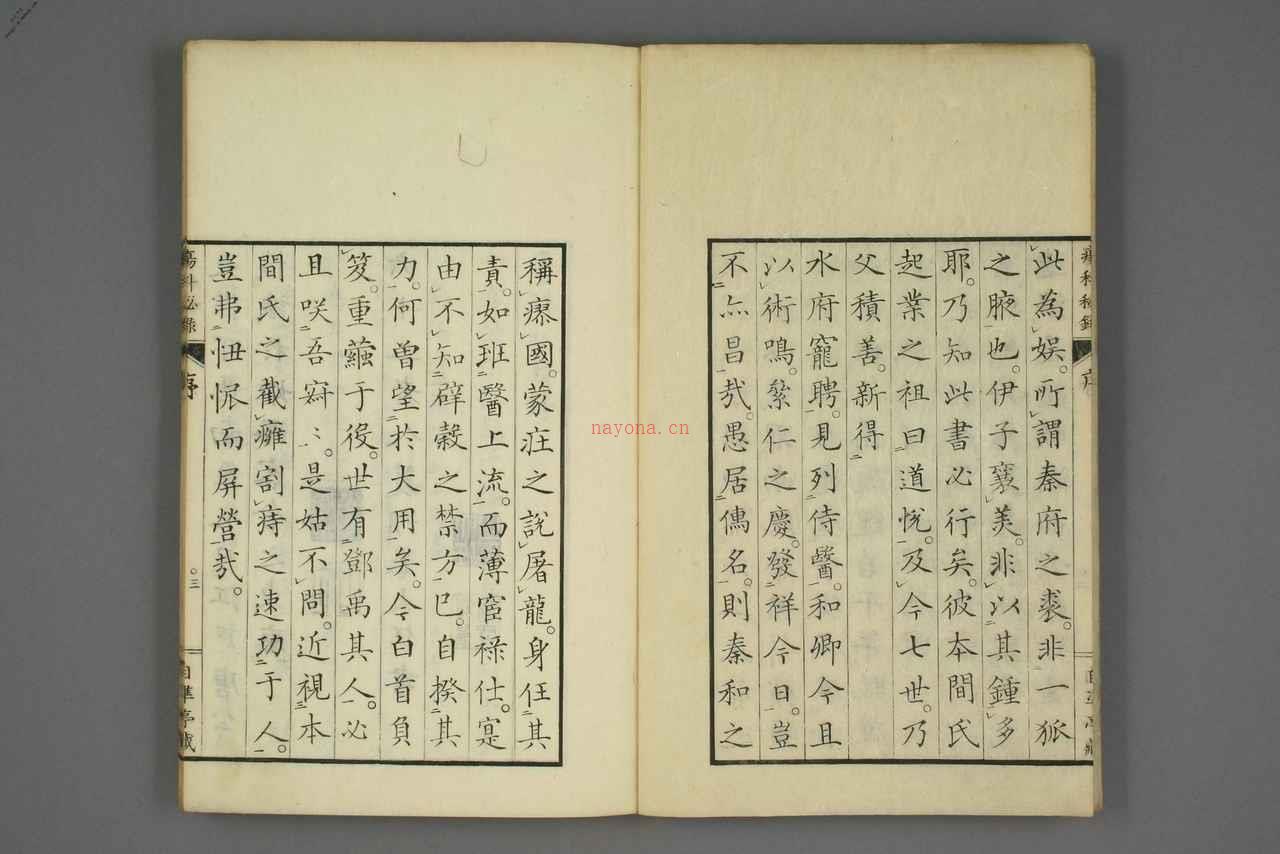 此為娛。所謂秦府之裘。非一狐
之腋也。伊子襄美。非以其鍾多
耶。乃知此書必行矣。彼本間氏
起業之祖曰道悅。及今七世。乃
父積善。新得
水府寵聘。見列侍醫。和卿今且
以術鳴。繄仁之慶。發祥今日。豈
不亦昌哉。愚居儁名。則秦和之
稱瘝國。蒙莊之說屠龍。身任其
責。如班醫上流。而薄宦祿仕。寔
由不知辟穀之禁方已。自揆其
力。何曾望於大用矣。今白首負
笈。重繭于役。世有鄧禹其人。必
且咲吾寂〻。是姑不問。近視本
間氏之截癰割痔之速功于人。
豈弗忸怩而屏營哉。
瘍科秘錄
序
三
自準亭藏
nayona.cn